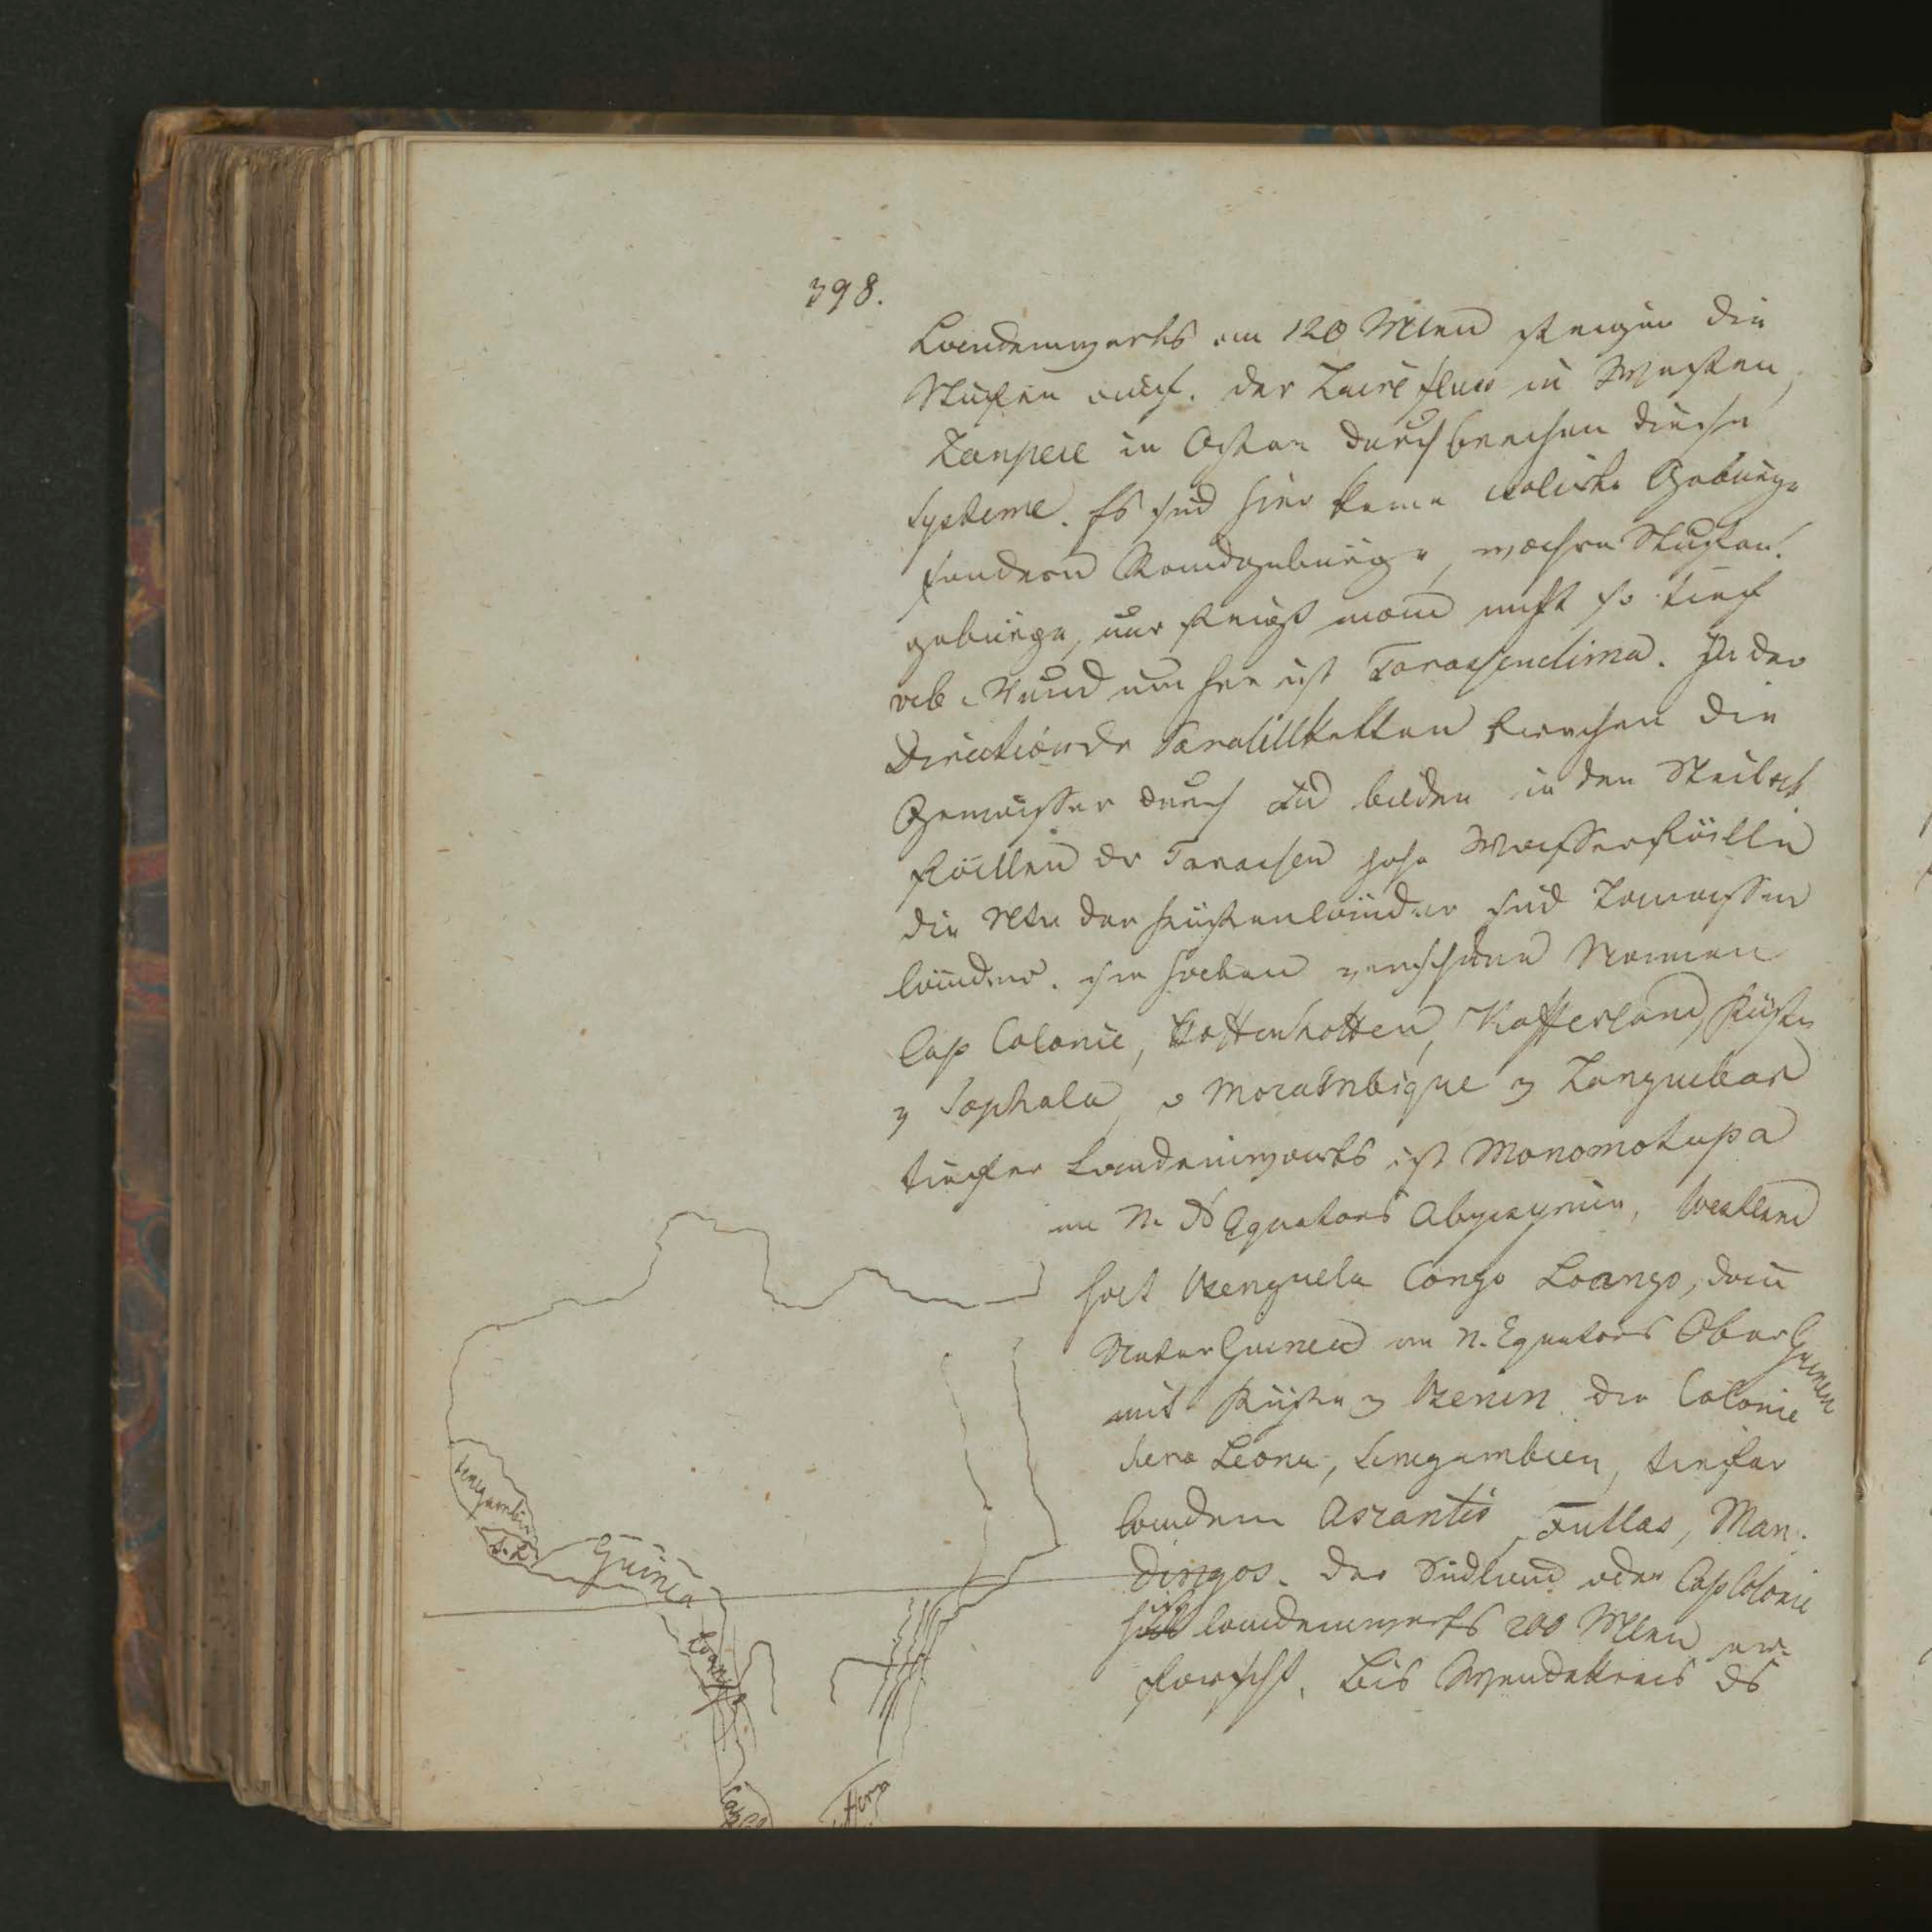 398.
Landeinwerts an 120 Mlen steigen die
Stufen auf. der Zaire fluss in Westen,
Zanpere in Osten durchbrechen diese
Systeme. Es sind hier keine isolirte Gebürge
sondern Randgebürge, wahre Stufen-
gebürge, nur steigt man nicht so tief
ab. Rund um her ist Terassenclima. In der
Direction der Parallelketten brechen die
Gewässer durch und bilden in den Steilab
fällen der Terassen hohe Wasserfälle
die der Küstenländer sind Terrassen
länder. sie haben verschiedene Namen
Cap Colonie, Hottenhotten, Kafferland, Küste
v Sophala, v Mozambique v Zanguebar
tiefer Landeinwarts ist Monomotapa
im N. ds Equators Abyssynien, Westland
hat Benguela Congo Loango, dann
Nieder Guinea im N. Equators Ober Guinea
mit Küste v Benin die Colonie
Sera Leona, Senegambien, tiefer
landein Aszantis, Fullas, Man-
dingos. Das Südland oder Cap Colonie
landeinwerts 200 Mlen er-
forscht, bis Wendekreis ds
Senegambien
S. L.
Guinea
Loango
Cap Col